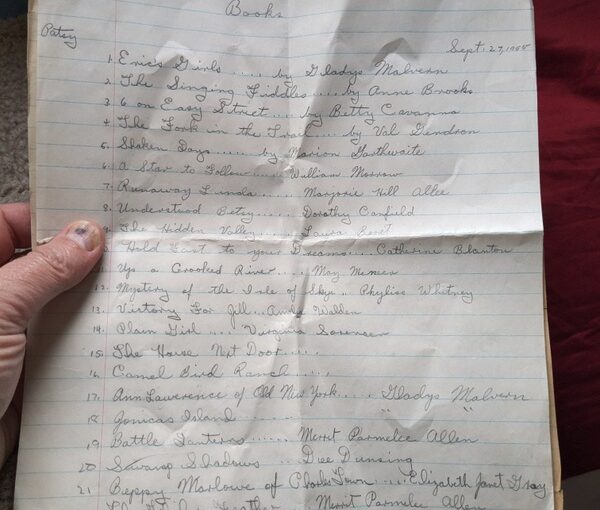 Books
Patsy
Sept. 27, 1955
1. Eric's Girls ..... by Gladys Malvern
2. The Singing Fiddles ... by Anne Brooks
3. 6 on Easy Street ... by Betty Cavanna
4. The Fork in the Trail ... by Val Gendron
5. Shaken Days .... by Marion Garthwaite
6. A Star to Follow ... William Morrow
7. Runaway Linda ..... Marjorie Hill Allee
8. Understood Betsy ..... Dorothy Canfield
9. The Hidden Valley ..... Laura Benet
Hold Fast to your Dreams ... Catherine Blanton
11. Up a Crooked River .... May McNeer
12. Mystery of the Isle of Skye .. Phyliss Whitney
13. Victory For Jill ... Walden
14. Plain Girl ..... Virginia Sorensen
15. The House Next Door ....
16. Camel Bird Ranch ....
17. Ann Lawerence of Old New York .... Gladys Malvern
18. Jonicas Island " "
19. Battle Lanterns ...... Merrit Parmelee Allen
20 Swamp Shadows ... Dee Dunsing
21 Beppy Marlowe of Charles Town ... Elizabeth Janet Gray
Merrit Parmelee Allen